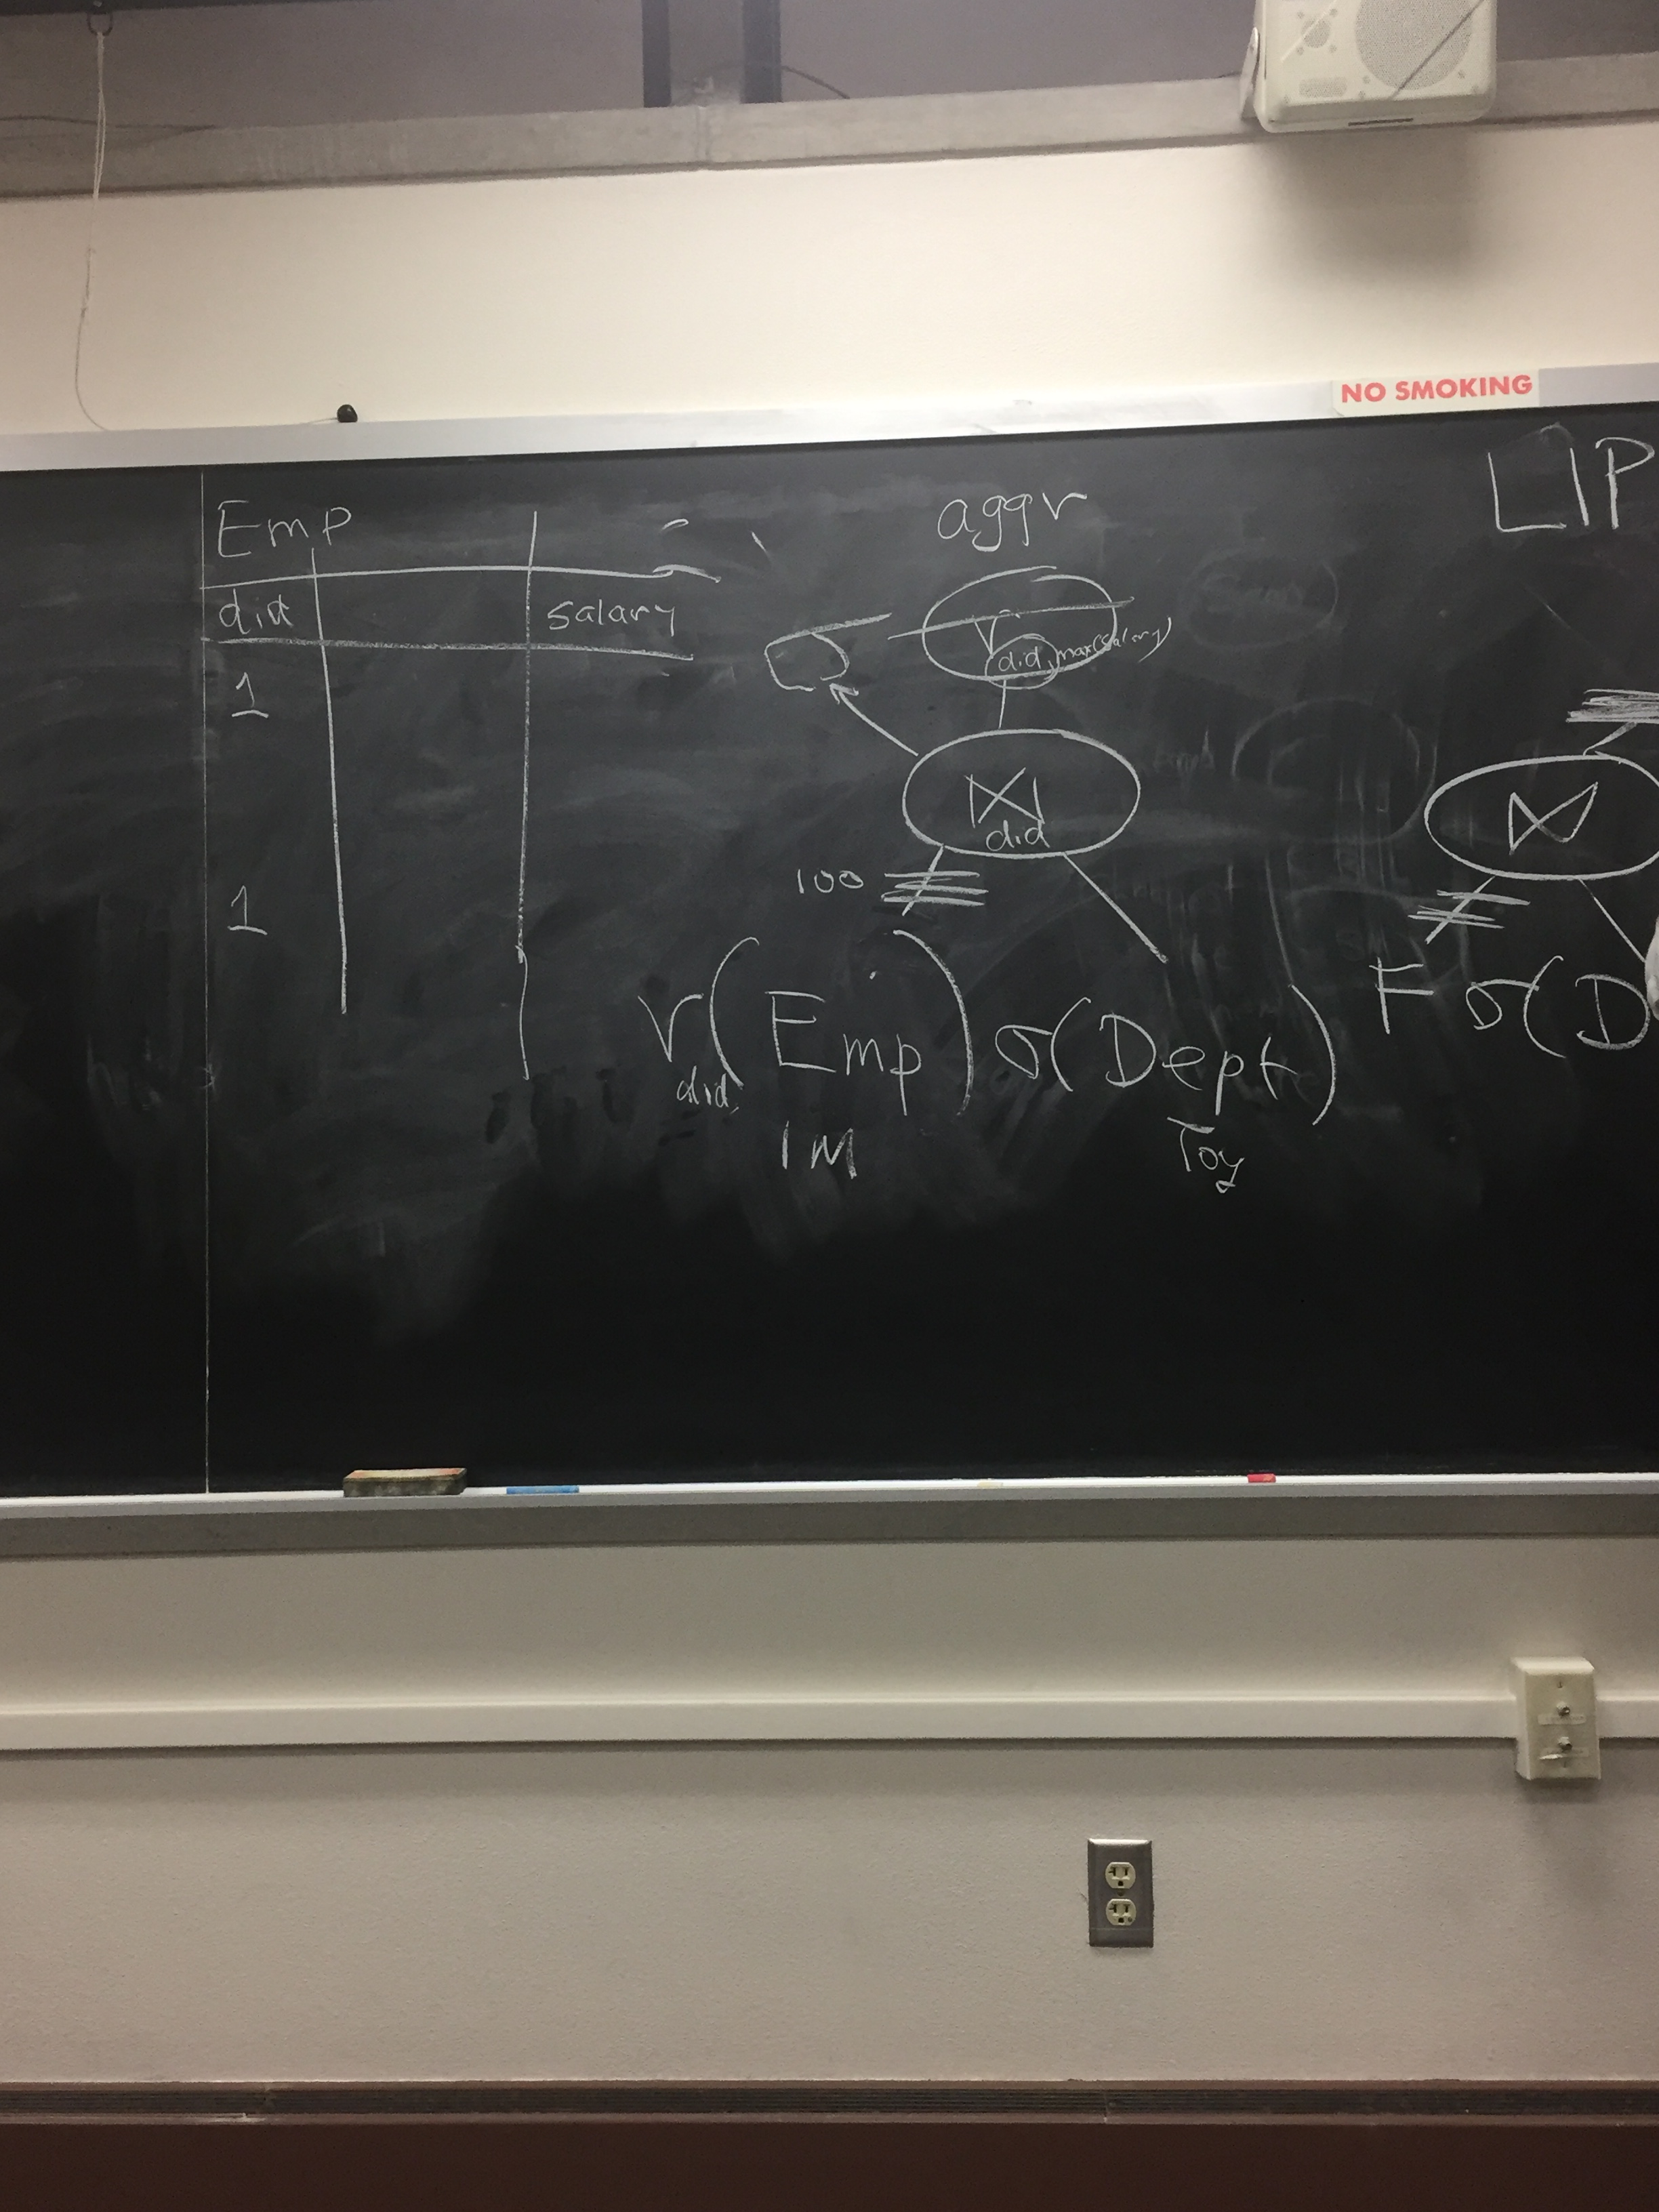 NO SMOKING
LIP
Emp
did salary
1
1
aggr
γ did, max(salary)
⋈ did
100
γ did, (Emp) σ(Dept)
1M Toy
⋈
F σ(D